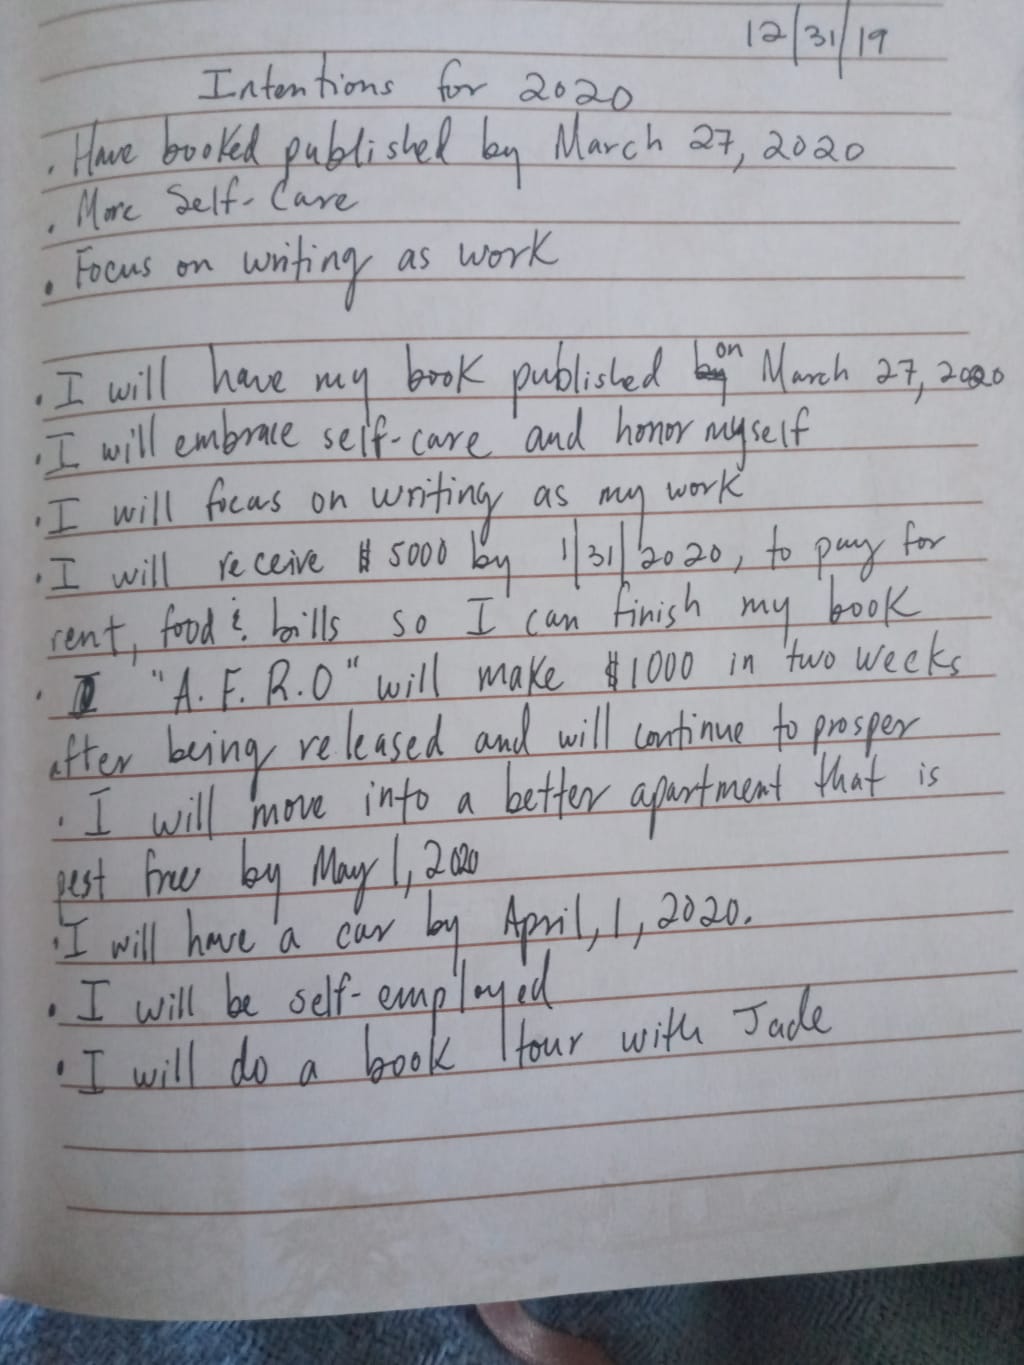 12/31/19
Intentions for 2020
. Have booked published by March 27, 2020
. More Self-Care
. Focus on writing as work
. I will have my book published by on March 27, 2020
. I will embrace self-care and honor myself
. I will focus on writing as my work
. I will receive $ 5000 by 1/31/2020, to pay for
rent, food & bills so I can finish my book
. I "A.F.R.O" will make $1000 in two weeks
after being released and will continue to prosper
. I will move into a better apartment that is
pest free by May 1, 2020
. I will have a car by April, 1, 2020.
. I will be self-employed
. I will do a book tour with Jade